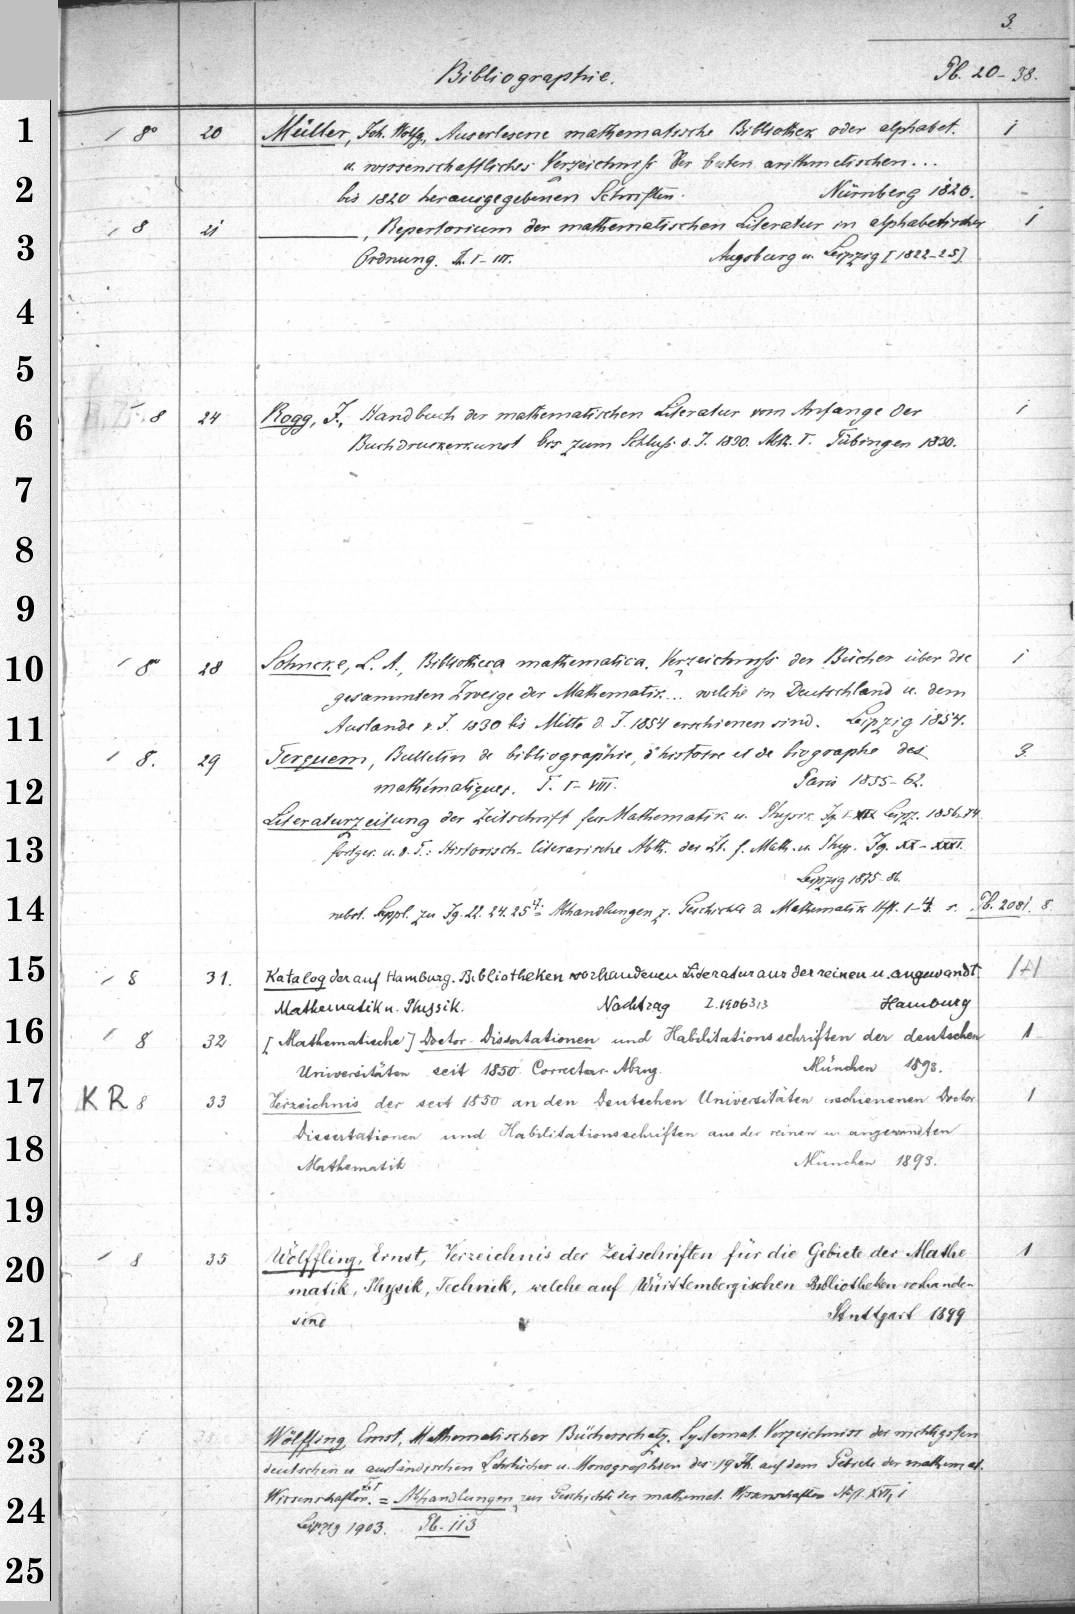 3.
Bibliographie. Pb. 20-38.
1 8° 20 Müller, Joh. Wolfg., Auserlesene mathematische Bibliothek oder alphabet. 1
u. wissenschaftliches Verzeichniß der besten arithmetischen...
2 bis 1820 herausgegebenen Schriften. Nürnberg 1820.
8 21 , Repertorium der mathematischen Literatur in alphabetischer 1
3 Ordnung. I-III. Augsburg u. Leipzig [1822-25]
4
5
6 8 24 Rogg, J., Handbuch der mathematischen Literatur vom Anfange der 1
Buchdruckerkunst bis zum Schluß d. J. 1830. Abth. I. Tübingen 1830.
7
8
9
10 8° 28 Sohncke, L. A., Bibliotheca mathematica. Verzeichniß der Bücher über die 1
gesammten Zweige der Mathematik... welche in Deutschland u. dem
11 Auslande v. J. 1830 bis Mitte d. J. 1854 erschienen sind. Leipzig 1854.
8. 29 Terquem, Bulletin de bibliographie, d'histoire et de biographie des 3
12 mathématiques. T. I-VIII. Paris 1855-62.
Literaturzeitung der Zeitschrift für Mathematik u. Physik Jg. I-XIX Leipz. 1856-74.
13 fortges. u. d. T.: Historisch-literarische Abth. der Zt. f. Math. u. Phys. Jg. XX-XXXI.
Leipzig 1875-86.
14 nebst Suppl. zu Jg. 22. 24. 25 = Abhandlungen z. Geschichte d. Mathematik Hft. 1-4. s. Pb. 2081. 8
15 8 31. Katalog der auf Hamburg. Bibliotheken vorhandenen Literatur aus der reinen u. angewandt.
Mathematik u. Physik. Nachtrag Hamburg
16 8 32 [Mathematische] Doctor-Dissertationen und Habilitationsschriften der deutschen 1
Universitäten seit 1850 Correctur-Abzug. München 1893.
17 KR 8 33 Verzeichnis der seit 1850 an den Deutschen Universitäten erschienenen Doctor 1
18 Dissertationen und Habilitationsschriften aus der reinen u. angewandten
Mathematik München 1893.
19
20 8 35 Wölffling, Ernst, Verzeichnis der Zeitschriften für die Gebiete der Mathe 1
matik, Physik, Technik, welche auf Württembergischen Bibliotheken vorhanden
21 sind Stuttgart 1899
22
23 Wölffing Ernst, Mathematischer Bücherschatz. Systemat. Verzeichniss der wichtigsten
deutschen u ausländischen Lehrbücher u. Monographien des 19 Jh. auf dem Gebiete der mathemat.
24 Wissenschaften. = Abhandlungen zur Geschichte der mathemat. Wissenschaften Hft. XVI, 1
Leipzig 1903. Pb. 113
25